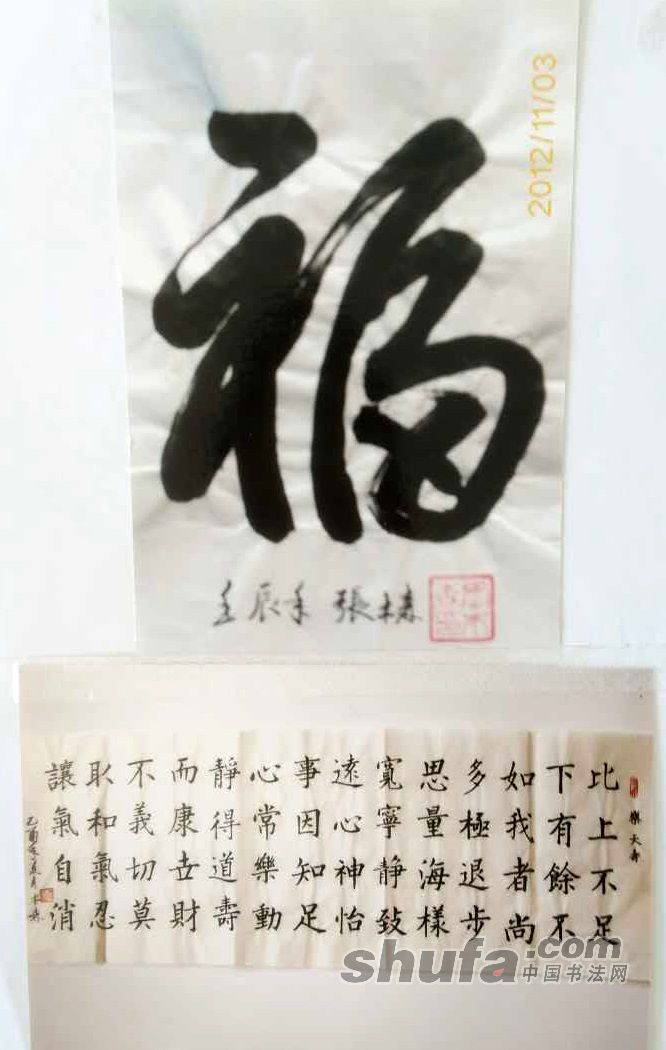 2012/11/03
福
壬辰年 張
樂天壽
比上不足
下有餘不
如我者尚
多極退步
思量海樣
寬寧靜致
遠心神怡
事因知足
心常樂動
靜得道壽
而康世財
不義切莫
取和氣忍
讓氣自消
乙酉年
shufa.com
中国书法网